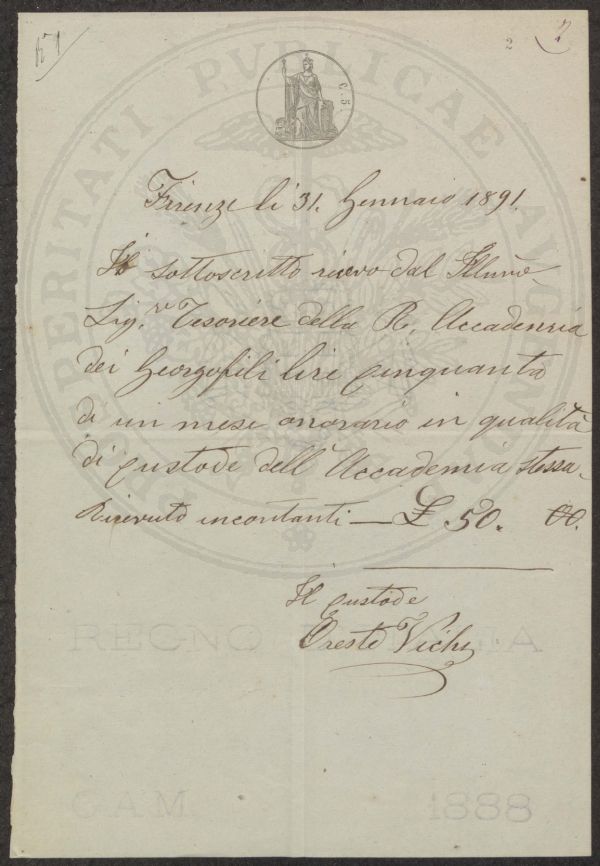 2
C. 5
PROSPERITATI PUBLICAE AUGENDAE
Firenze li 31. Gennaio 1891.
Il sottoscritto ricevo dal Illumo
Sig.r Tesoriere della R. Accademia
dei Georgofili lire cinquanta
di un mese onorario in qualità
di custode dell'Accademia stessa.
Ricevuto in contanti — £ 50. 00.
Il custode
Oreste Vichi
REGNO D'ITALIA
G.A.M. 1888